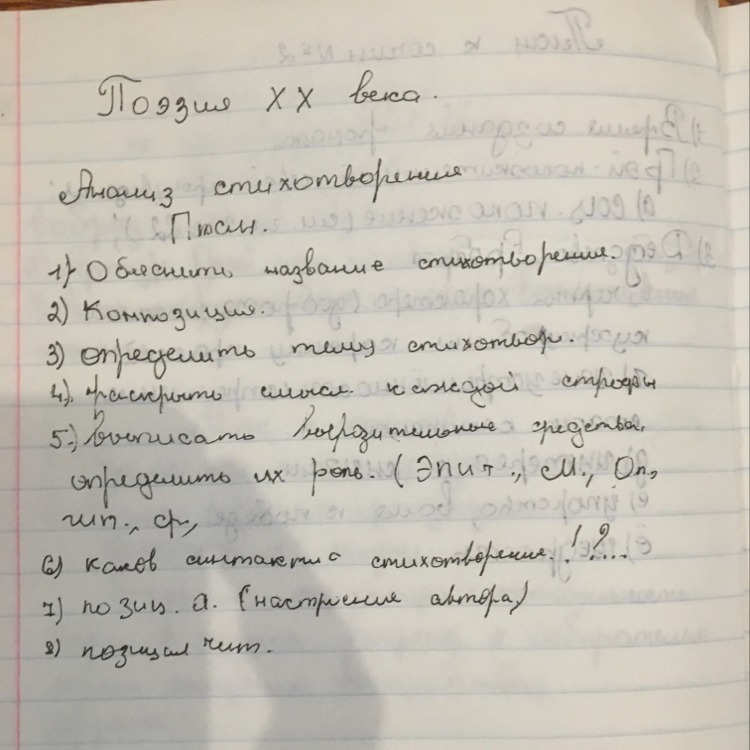 Поэзия XX века.
Анализ стихотворения
План.
1) Объяснить название стихотворения.
2) Композиция.
3) определить тему стихотвор.
4) раскрыть смысл каждой строфы
5) Выписать выразительные средства,
определить их роль. (Эпит., М., Ол.,
гип., ср.,
6) каков синтаксис стихотворения. !?...
7) позиц. а. (настроение автора)
8) позиция чит.